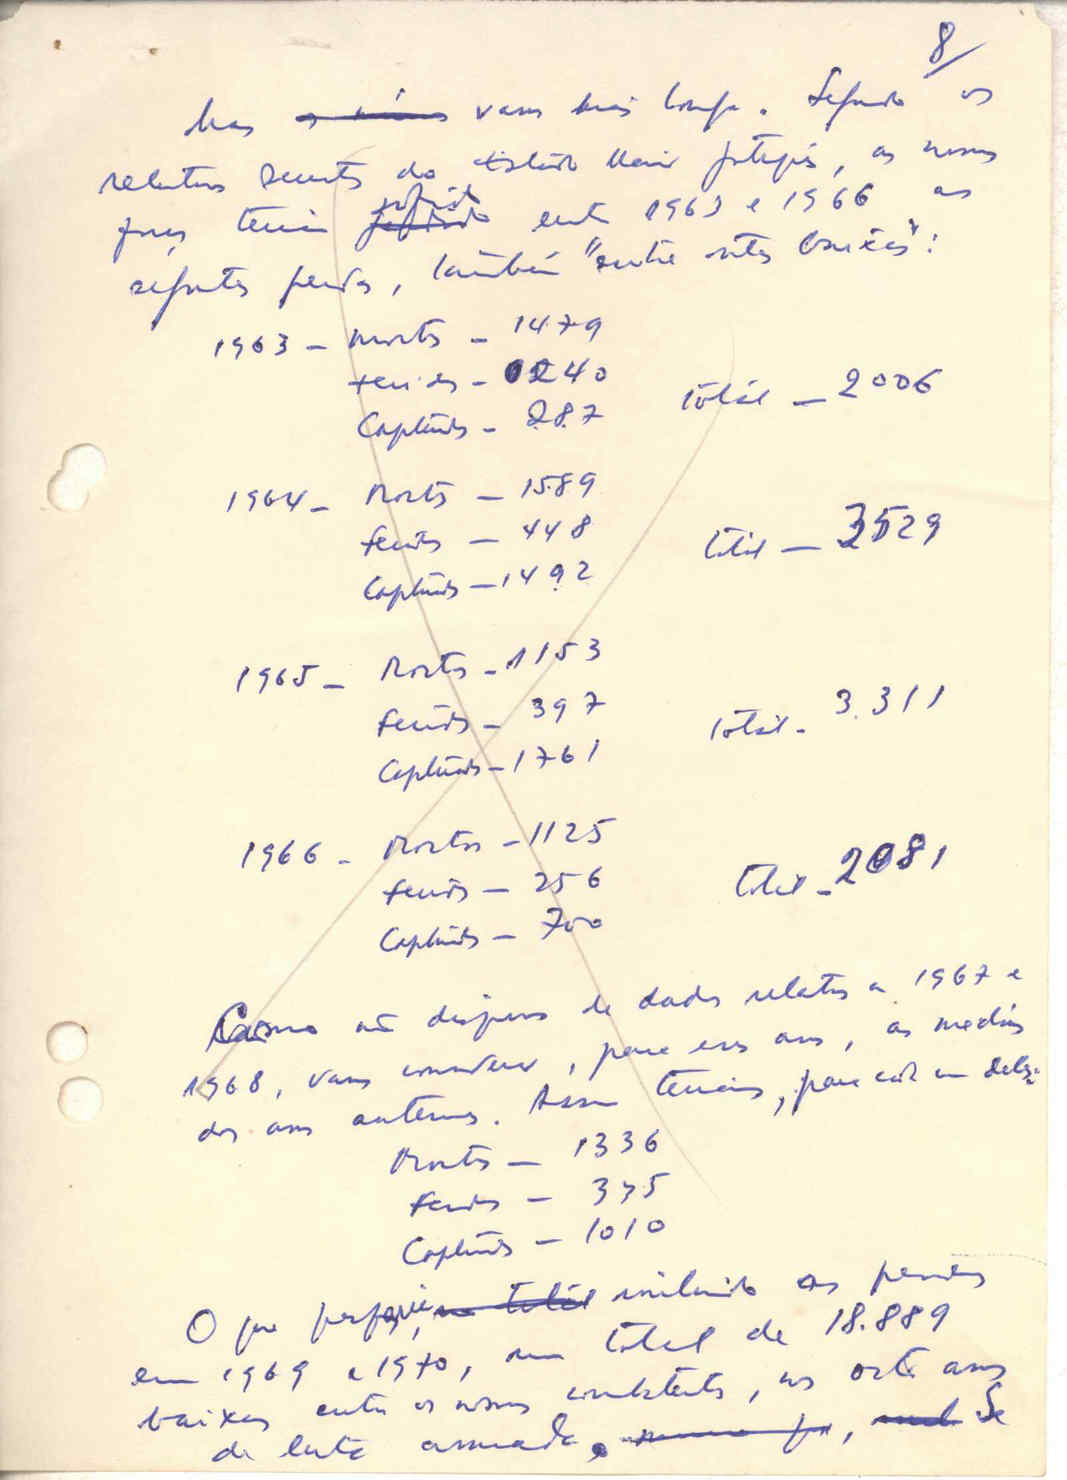 8/
Mas vamos mais longe. Segundo os
relatórios secretos do Estado Maior português, as nossas
forças teriam sofrido entre 1963 e 1966 as
seguintes perdas, também "entre outras baixas":
1963 - Mortos - 1479
feridos - 240
Capturados - 287
total - 2006
1964 - Mortos - 1589
feridos - 448
Capturados - 1492
total - 3529
1965 - Mortos - 1153
feridos - 397
Capturados - 1761
total - 3.311
1966 - Mortos - 1125
feridos - 256
Capturados - 700
total - 2081
Como não dispomos de dados relativos a 1967 e
1968, vamos considerar, para esses anos, as médias
dos anos anteriores. Assim teríamos, para cada um deles:
Mortos - 1336
feridos - 335
Capturados - 1010
O que perfazia, incluindo as perdas
em 1969 e 1970, um total de 18.889
baixas entre os nossos combatentes, nos oito anos
de luta armada. Se